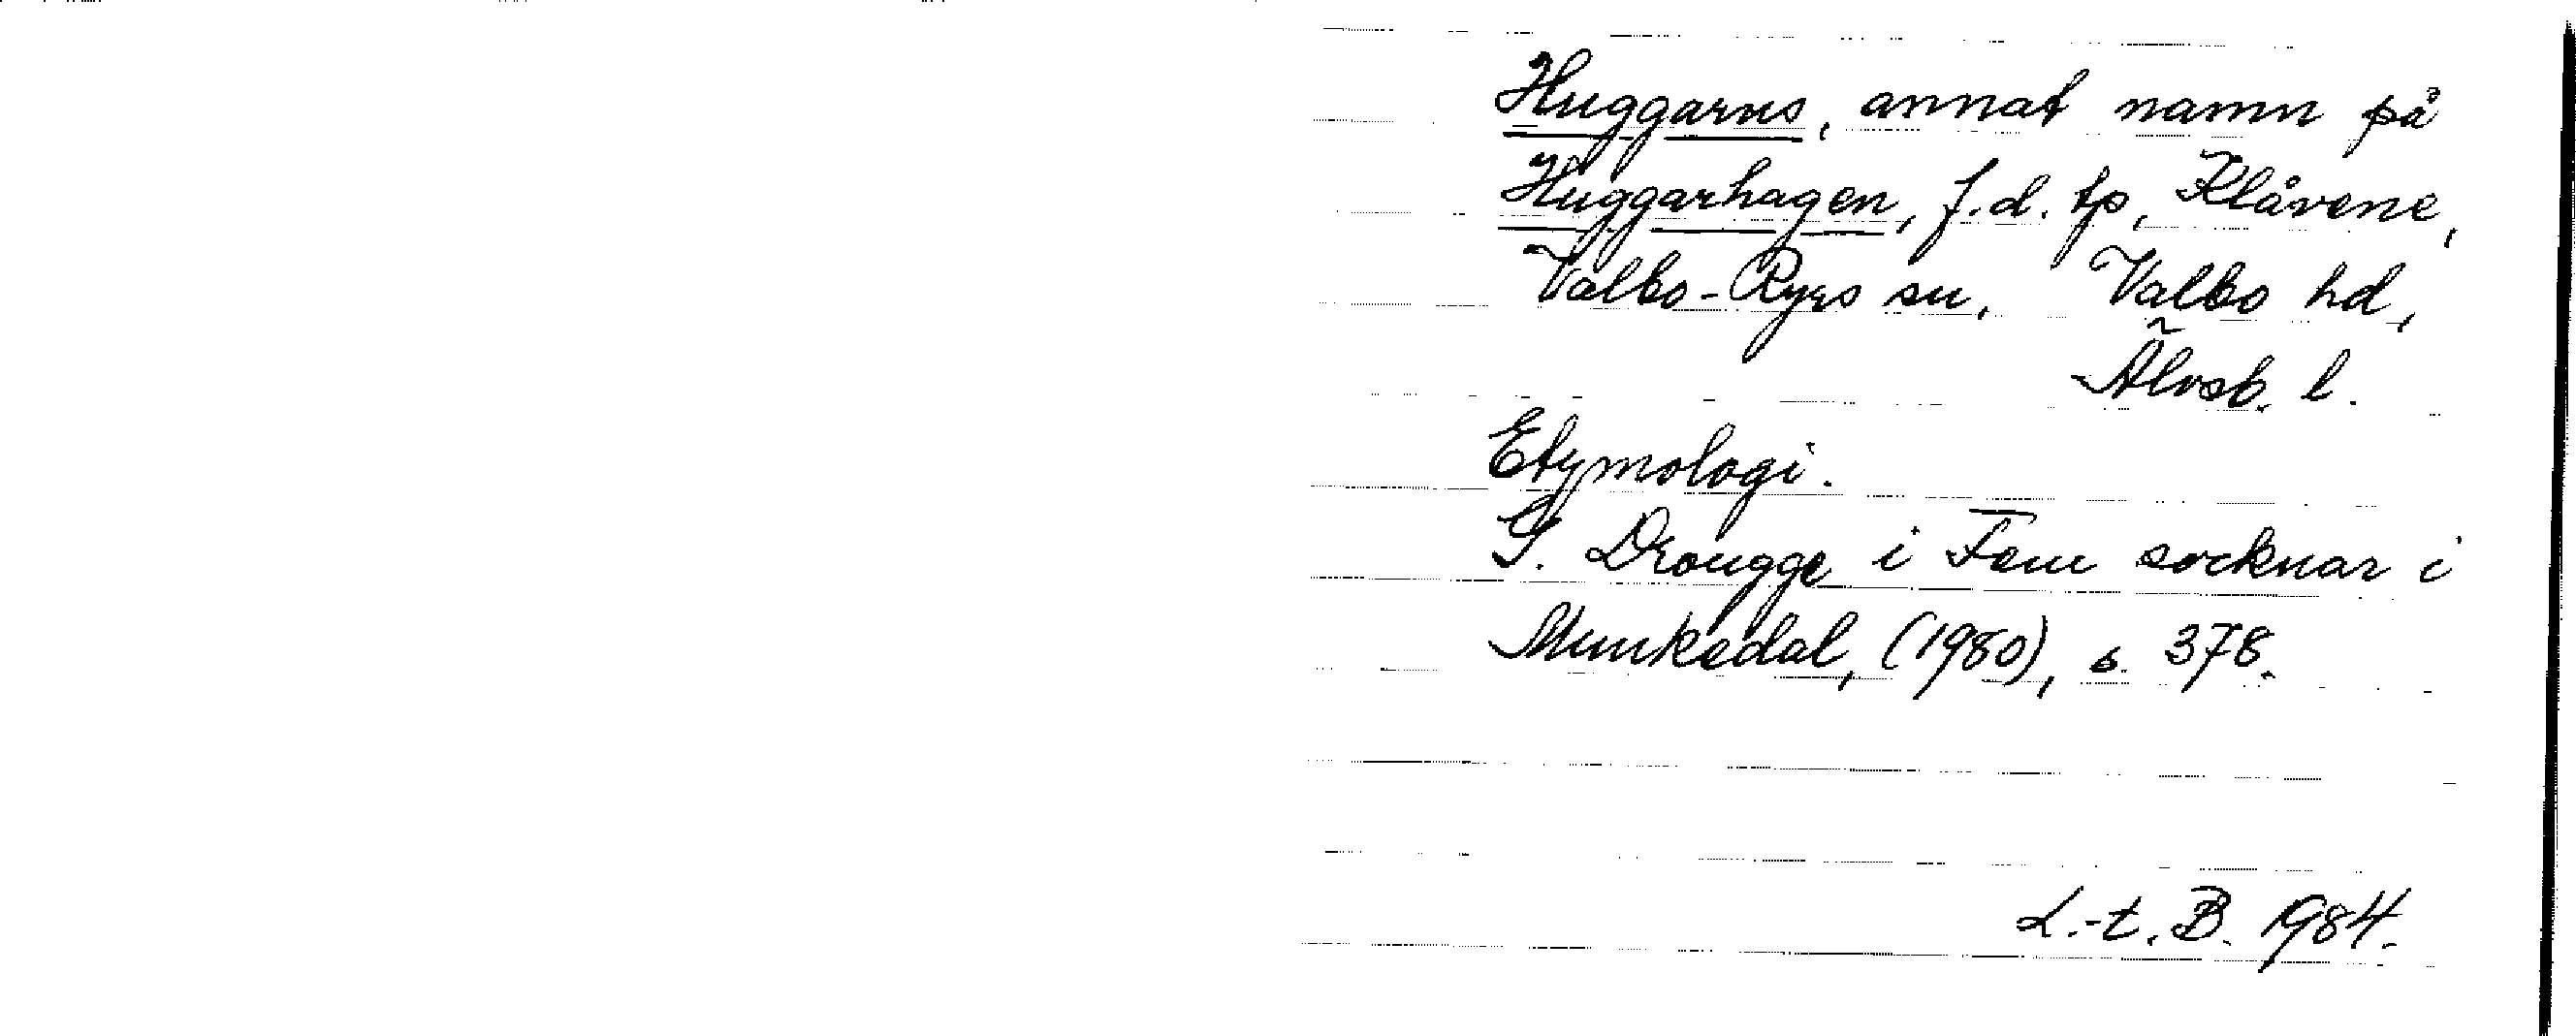 Huggarns, annat namn på
Huggarhagen, f.d. tp, Klåvene,
Valbo-Ryrs sn, Valbo hd,
Älvsb. l.
Etymologi.
G. Drougge i Fem socknar i
Munkedal, (1980), s. 378.
L.-t. B. 1984.